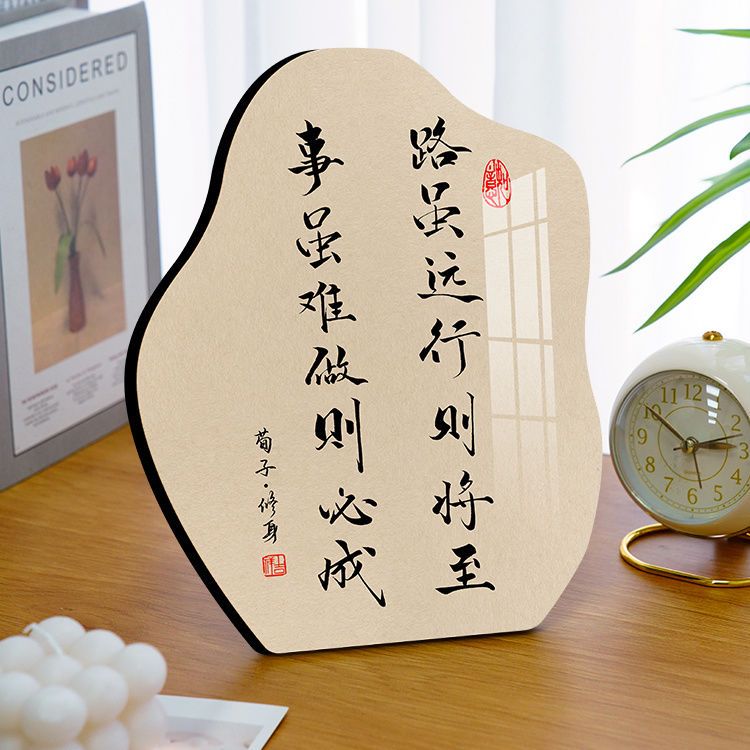 路虽远行则将至
事虽难做则必成
荀子·修身
CONSIDERED
12
1
2
3
4
5
6
7
8
9
10
11